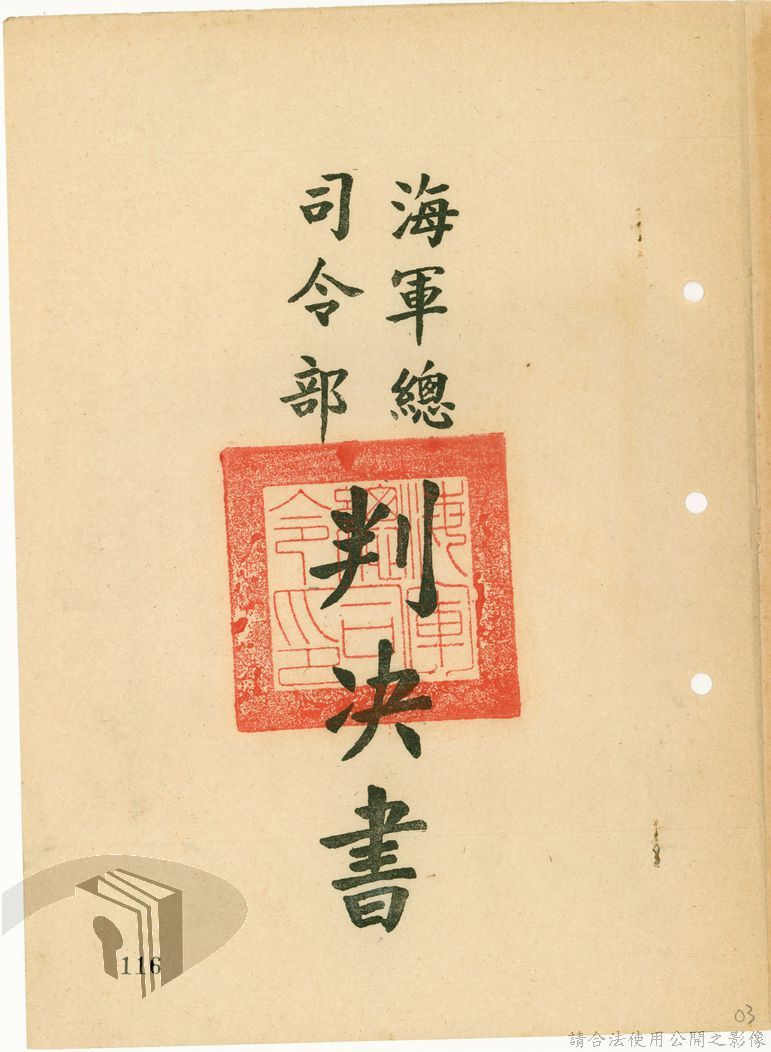 海軍總
司令部
判决書
海軍
總司
令印
116
03
請合法使用公開之影像